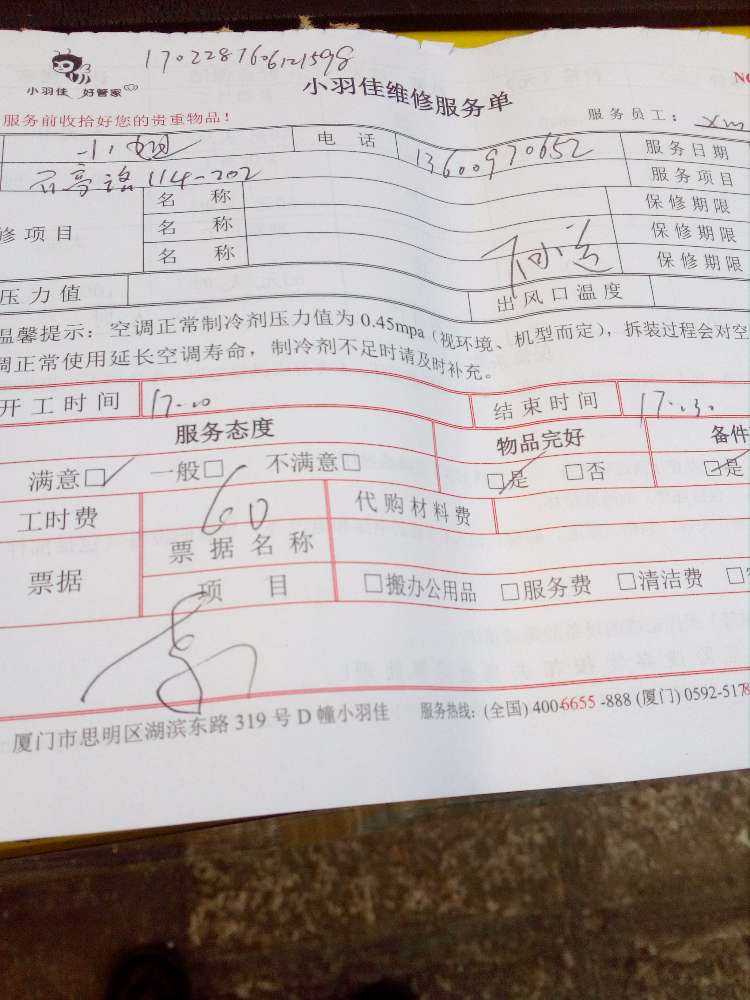 1702281606121598
小羽佳 好管家
小羽佳维修服务单
No
服务前收拾好您的贵重物品!
服务员工: xm
电 话 13600970652 服务日期
114-202 服务项目
名 称 保修期限
修项目 名 称 保修期限
名 称 保修期限
压力值 出风口温度
温馨提示: 空调正常制冷剂压力值为 0.45mpa (视环境、机型而定), 拆装过程会对空
调正常使用延长空调寿命, 制冷剂不足时请及时补充。
开工时间 17:00 结束时间 17:30
服务态度 物品完好 备件
满意☑ 一般□ 不满意□ ☑是 □否 ☑是
工时费 60 代购材料费
票据 票据名称
项 目 □搬办公用品 □服务费 □清洁费 □
厦门市思明区湖滨东路 319 号 D 幢小羽佳 服务热线: (全国) 4006655-888 (厦门) 0592-5178